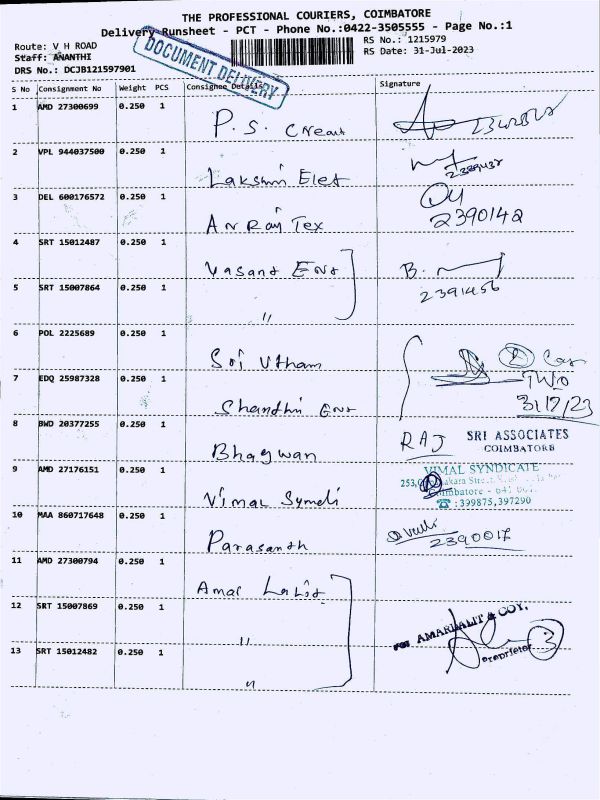 THE PROFESSIONAL COURIERS, COIMBATORE
Delivery Runsheet - PCT - Phone No.:0422-3505555 - Page No.:1
Route: V H ROAD
RS No.: 1215979
Staff: ANANTHI
RS Date: 31-Jul-2023
DRS No.: DCJB121597901
DOCUMENT DELIVERY
S No Consignment No Weight PCS Consignee Details Signature
1 AMD 27300699 0.250 1 P.S. Creat
2 VPL 944037500 0.250 1 Lakshmi Elet
2389432
3 DEL 600176572 0.250 1 An Raj Tex
2390142
4 SRT 15012487 0.250 1 Vasant Ent B.
5 SRT 15007864 0.250 1 "
2391456
6 POL 2225689 0.250 1 Sri Utham
2
7 EDQ 25987328 0.250 1 Shandhi Ent TWO
31/7/23
8 BWD 20377255 0.250 1 Bhagwan RAJ SRI ASSOCIATES
COIMBATORE
9 AMD 27176151 0.250 1 Vimal Syndi VIMAL SYNDICATE
253,
Coimbatore - 641
☎ :399875,397290
10 MAA 860717648 0.250 1 Parasanth
2390017
11 AMD 27300794 0.250 1 Amar Lalit
12 SRT 15007869 0.250 1 " For AMARLALIT & COY.
13 SRT 15012482 0.250 1 " Proprietor 3